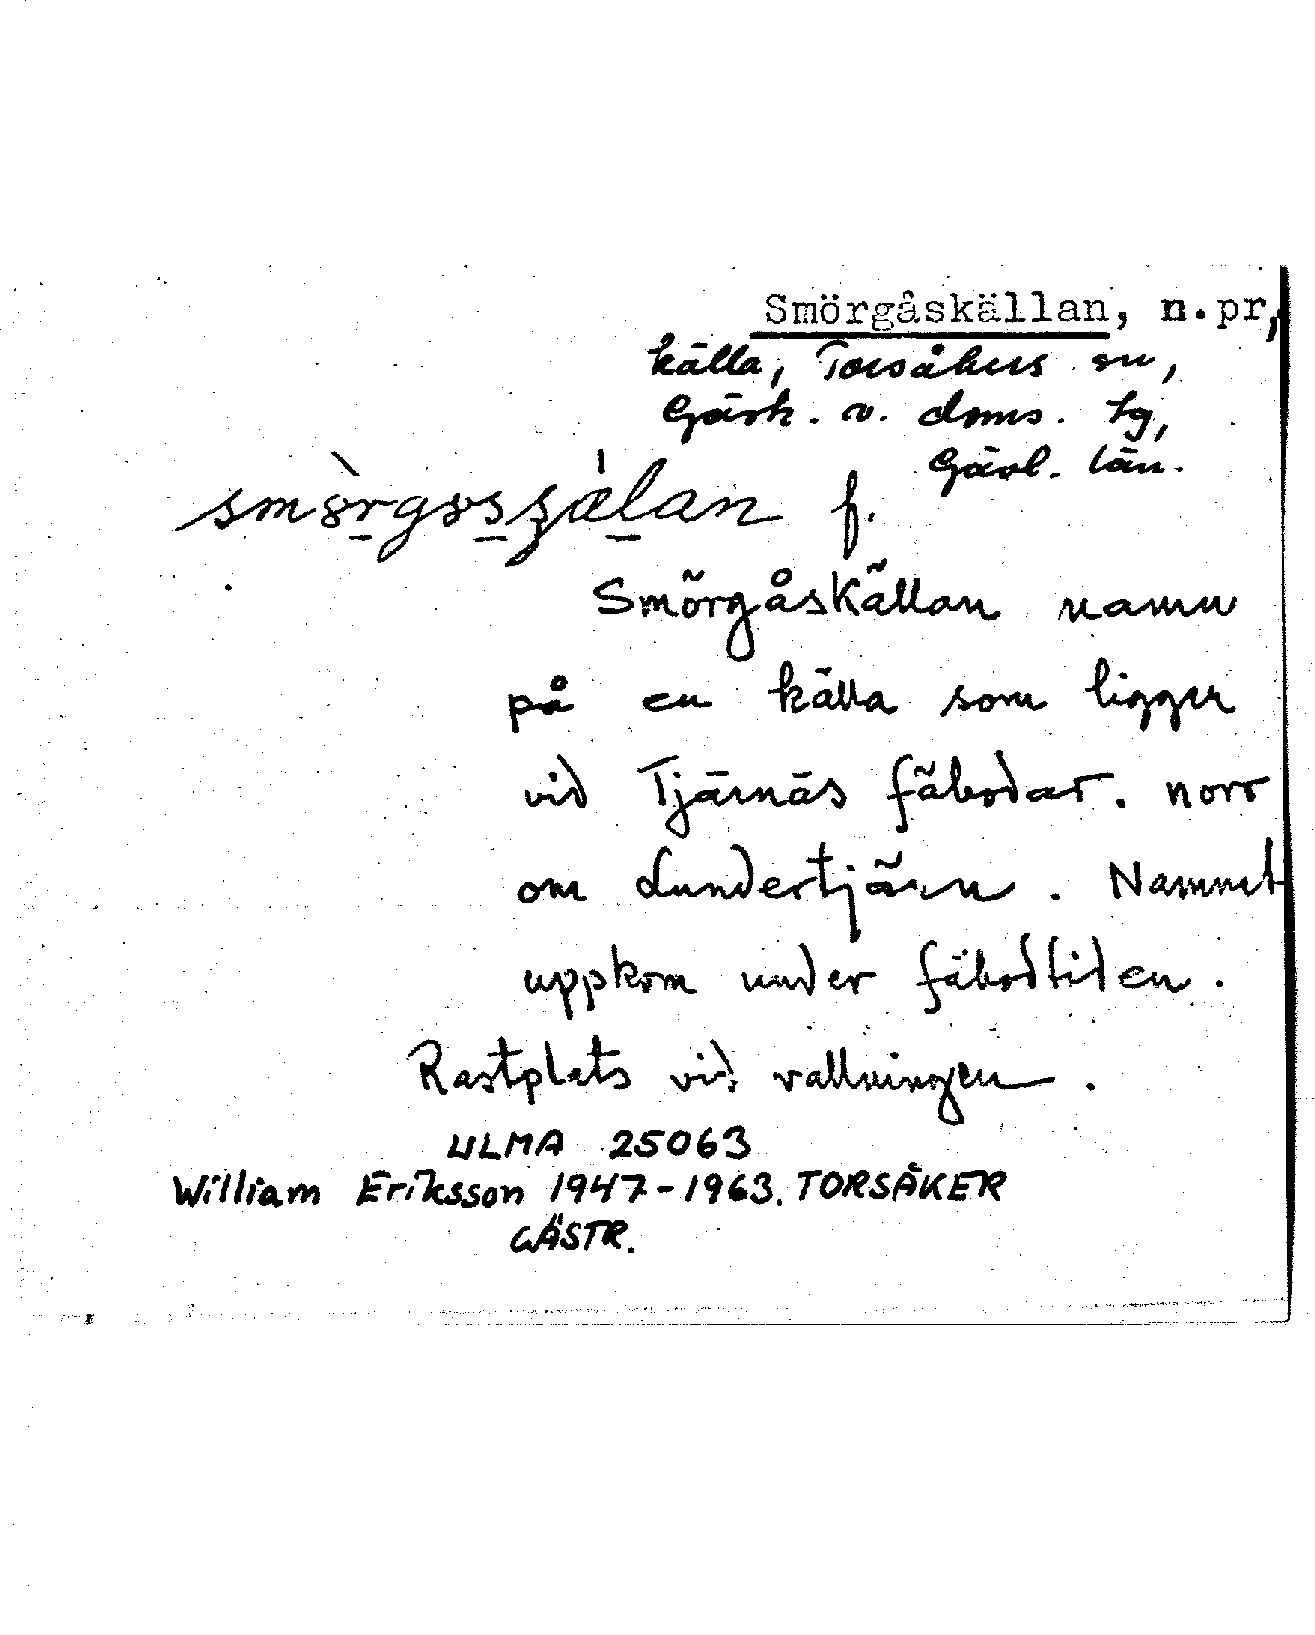 Smörgåskällan, n.pr,
källa, Torsåkers sn,
Gästr. v. doms. tg,
Gävl. län.
f.
Smörgåskällan namn
på en källa som ligger
vid Tjärnäs fäbodar. norr
om Lundertjärn. Namnet
uppkom under fäbodtiden.
Rastplats vid vallningen.
ULMA 25063
William Eriksson 1947-1963. TORSÅKER
GÄSTR.